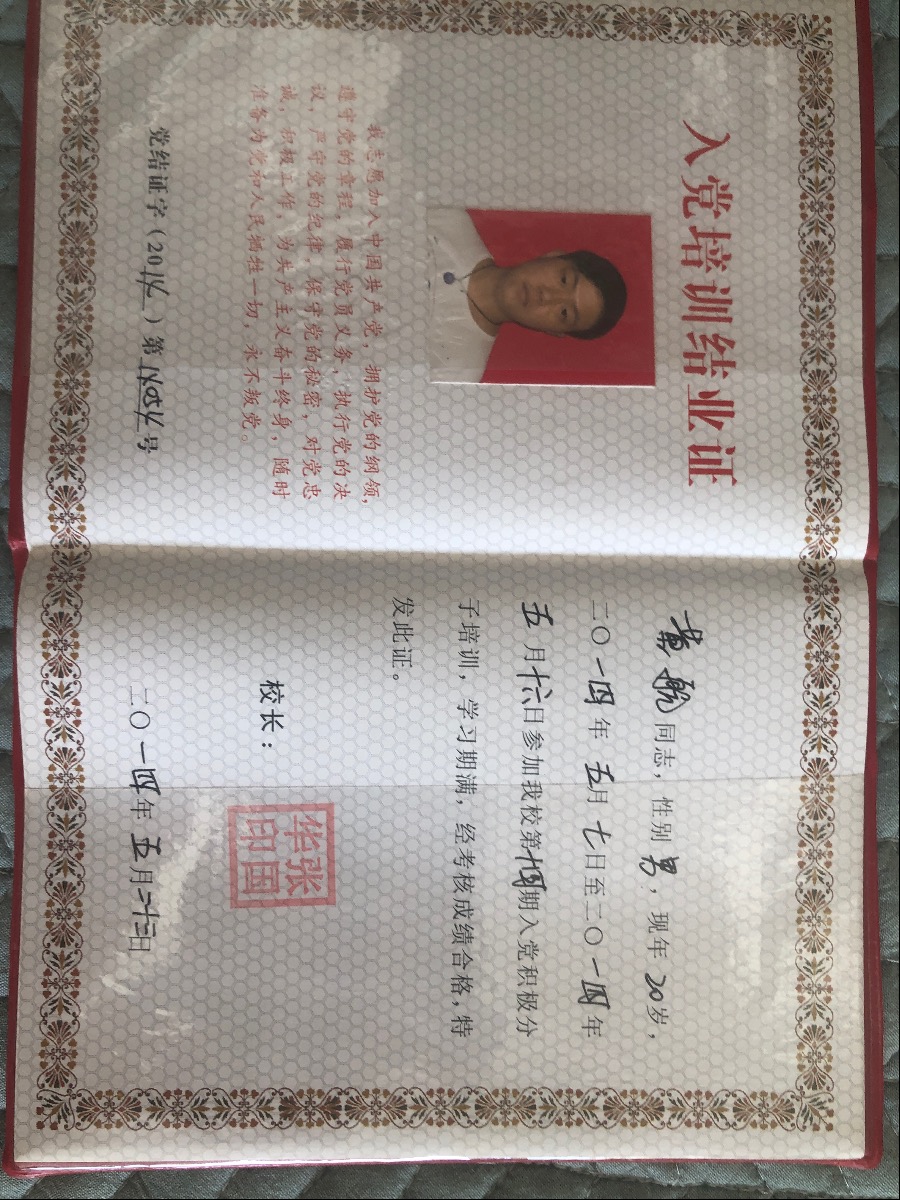 入党培训结业证
我志愿加入中国共产党，拥护党的纲领，
遵守党的章程，履行党员义务，执行党的决
议，严守党的纪律，保守党的秘密，对党忠
诚，积极工作，为共产主义奋斗终身，随时
准备为党和人民牺牲一切，永不叛党。
党结证字（2014）第 号
黄 同志，性别男，现年20岁，
二〇一四年五月七日至二〇一四年
五月十六日参加我校第十四期入党积极分
子培训，学习期满，经考核成绩合格，特
发此证。
校长：
张国华印
二〇一四年五月二十三日